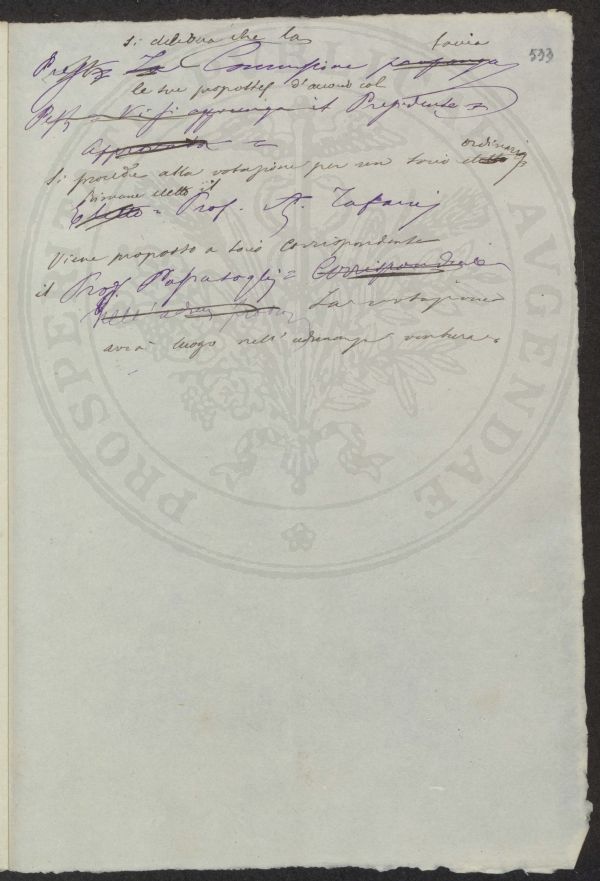 533
si delibera che la faccia
La Commissione
le sue proposte d'accordo col
Vi si aggiunga il Presidente
approvato =
Si procede alla votazione per un socio ordinario
Rimane eletto il
Eletto = Prof. A. Tafani
Viene proposto a socio corrispondente
il Prof. Papasogli = Corrispondente
nell' adunanza La votazione
avrà luogo nell' adunanza ventura
PROSPERITATI AUGENDAE